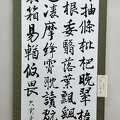 抽條枇杷晚翠梧
根委翳落葉飄颻
凌摩絳霄耽讀翫
囊箱易輶攸畏